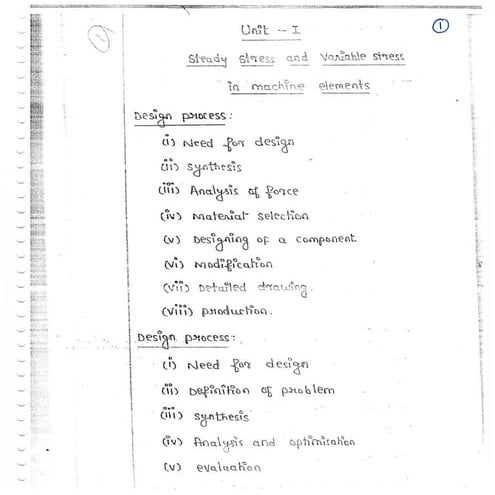 Unit - I
1
Steady stress and variable stress
in machine elements
Design process:
(i) Need for design
(ii) synthesis
(iii) Analysis of force
(iv) material selection
(v) Designing of a component
(vi) modification
(vii) Detailed drawing.
(viii) production.
Design process:
(i) Need for design
(ii) Definition of problem
(iii) synthesis
(iv) Analysis and optimisation
(v) evaluation